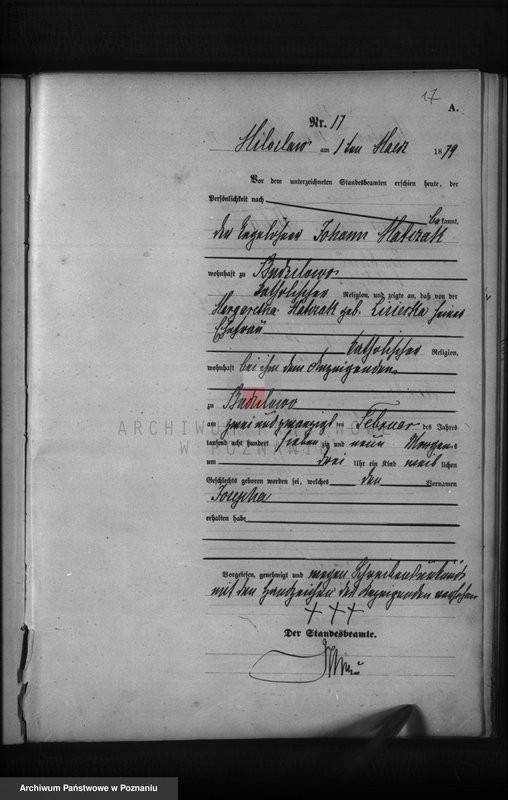 17
A.
Nr. 17
Miloslaw am 1ten Maerz 1879
Vor dem unterzeichneten Standesbeamten erschien heute, der
Persönlichkeit nach
bekannt,
der Tagelöhner Johann Matczak
wohnhaft zu
katholischer Religion, und zeigte an, daß von der
Margaretha Matczak geb. seiner
Ehefrau
katholischer Religion,
wohnhaft bei ihm dem Anzeigenden
zu
am zwei und zwanzigsten Februar des Jahres
tausend acht hundert siebenzig und neun Morgens
um drei Uhr ein Kind weiblichen
Geschlechts geboren worden sei, welches den Vornamen
Josepha
erhalten habe
Vorgelesen, genehmigt und wegen Schreibensunkunde
mit den Handzeichen des Anzeigenden versehen
+++
Der Standesbeamte.
ARCHIWUM PAŃSTWOWE
W POZNANIU
Archiwum Państwowe w Poznaniu